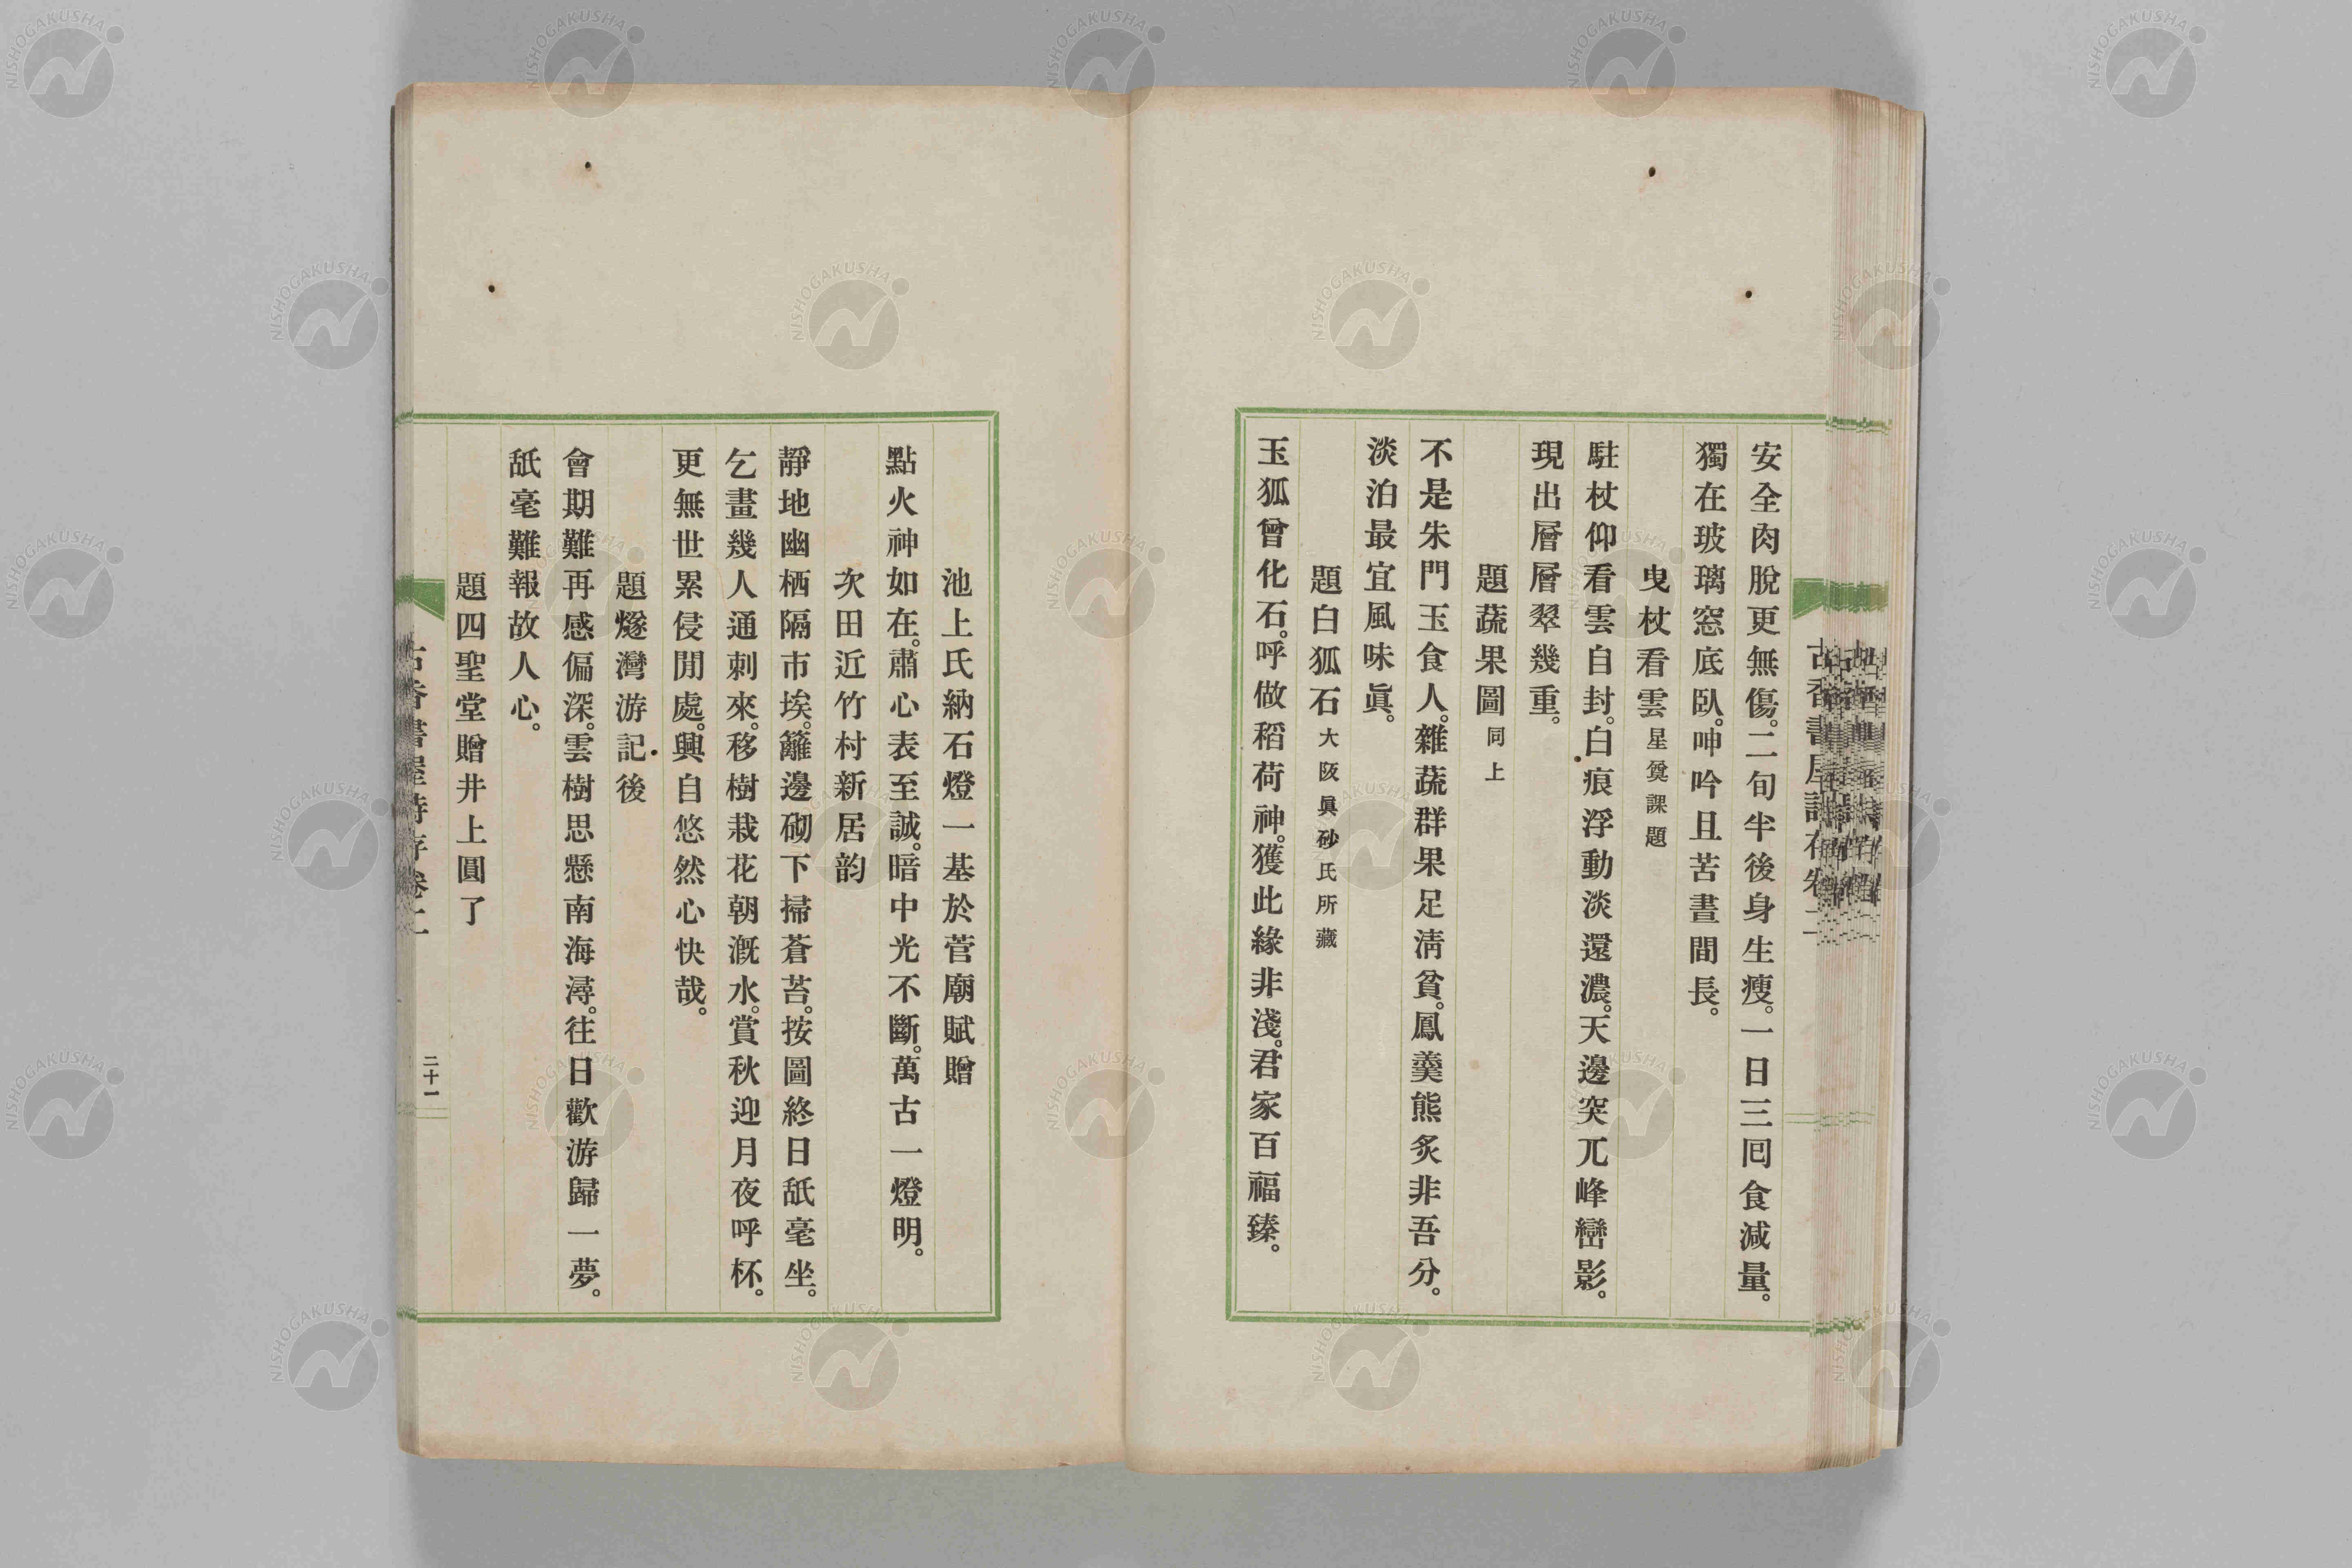 安全肉脫更無傷。二旬半後身生瘦。一日三囘食減量。
獨在玻璃窓底臥。呻吟且苦晝間長。
曳杖看雲 星奠課題
駐杖仰看雲自封。白痕浮動淡還濃。天邊突兀峰巒影。
現出層層翠幾重。
題蔬果圖 同上
不是朱門玉食人。雜蔬群果足淸貧。鳳羹熊炙非吾分。
淡泊最宜風味眞。
題白狐石 大阪眞砂氏所藏
玉狐曾化石。呼做稻荷神。獲此緣非淺。君家百福臻。
池上氏納石燈一基於菅廟賦贈
點火神如在。肅心表至誠。暗中光不斷。萬古一燈明。
次田近竹村新居韵
靜地幽栖隔市埃。籬邊砌下掃蒼苔。按圖終日舐毫坐。
乞畫幾人通刺來。移樹栽花朝漑水。賞秋迎月夜呼杯。
更無世累侵閒處。興自悠然心快哉。
題燧灣游記後
會期難再感偏深。雲樹思懸南海潯。往日歡游歸一夢。
舐毫難報故人心。
題四聖堂贈井上圓了
古香書屋詩存卷二
二十一
NISHOGAKUSHA